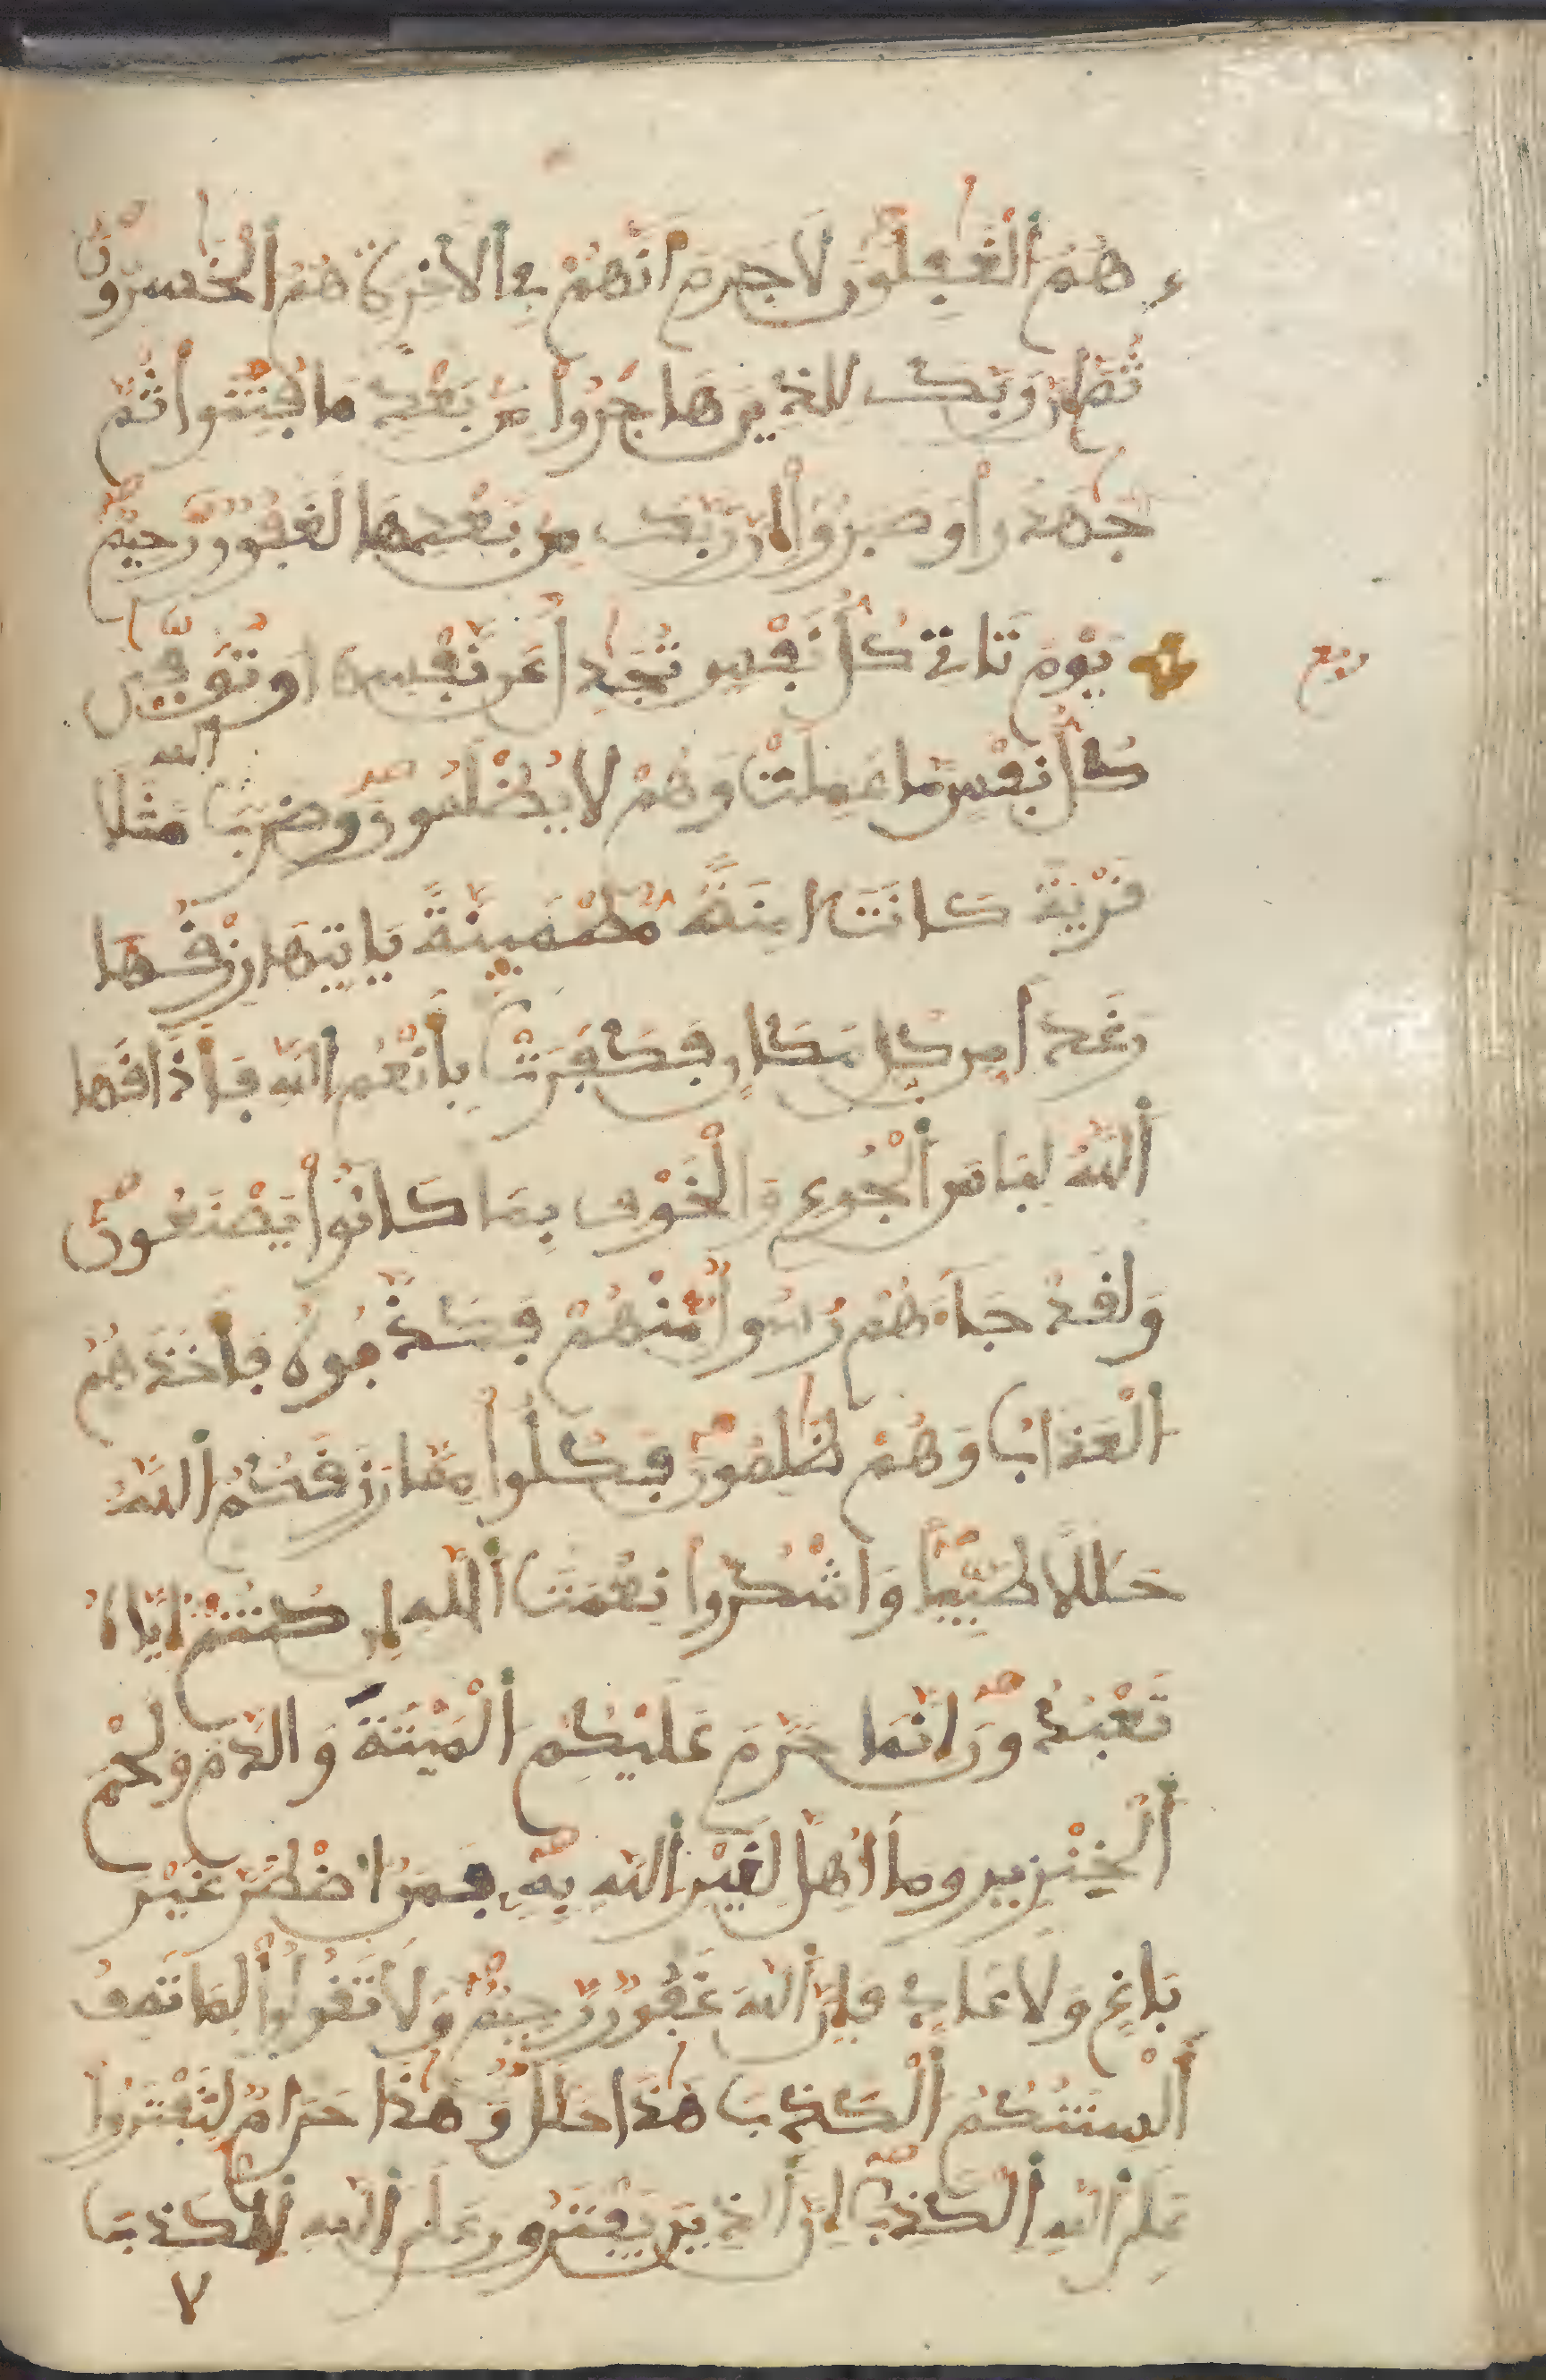 هُمُ ألْغَٰفِلُونَ لَا جَرَمَ أَنَّهُمْ فِے ألَاخِرَةِ هُمُ ألْخَٰسِرُونَ
ثُمَّ إِنَّ رَبَّكَ لِلذِينَ هَاجَرُواْ مِنۢ بَعْدِ مَا فُتِنُواْ ثُمَّ
جَٰهَدُواْ وَصَبَرُوٓاْ إِنَّ رَبَّكَ مِنۢ بَعْدِهَا لَغَفُورٌ رَّحِيمٌ
ربع
يَوْمَ تَاتِے كُلُّ نَفْسٍ تُجَٰدِلُ عَن نَّفْسِهَا وَتُوَفّ۪ىٰ
كُلُّ نَفْسٍ مَّا عَمِلَتْ وَهُمْ لَا يُظْلَمُونَ وَضَرَبَ ألله مَثَلًا
قَرْيَةً كَانَتَ امِنَةً مُّطْمَئِنَّةً يَاتِيهَا رِزْقُهَا
رَغَدًا مِّن كُلِّ مَكَانٍ فَكَفَرَتْ بِأَنْعُمِ اللَّهِ فَأَذَٰقَهَا
أللَّهُ لِبَاسَ ألْجُوعِ وَالْخَوْفِ بِمَا كَانُواْ يَصْنَعُونَ
وَلَقَدْ جَآءَهُمْ رَسُولٌ مِّنْهُمْ فَكَذَّبُوهُ فَأَخَذَهُمُ
الْعَذَابُ وَهُمْ ظَٰلِمُونَ فَكُلُواْ مِمَّا رَزَقَكُمُ أللَّهُ
حَلَٰلًا طَيِّبًا وَاشْكُرُواْ نِعْمَتَ أللَّهِ إِن كُنتُمُ إِيَّاهُ
تَعْبُدُونَ إِنَّمَا حَرَّمَ عَلَيْكُمُ ألْمَيْتَةَ وَالدَّمَ وَلَحْمَ
ألْخِنزِيرِ وَمَآ أُهِلَّ لِغَيْرِ أللَّهِ بِهِ فَمَنُ اضْطُرَّ غَيْرَ
بَاغٍ وَلَا عَادٍ فَإِنَّ أللَّهَ غَفُورٌ رَّحِيمٌ وَلَا تَقُولُواْ لِمَا تَصِفُ
أَلْسِنَتُكُمُ ألْكَذِبَ هَٰذَا حَلَٰلٌ وَهَٰذَا حَرَامٌ لِّتَفْتَرُواْ
عَلَى أللَّهِ ألْكَذِبَ إِنَّ ألذِينَ يَفْتَرُونَ عَلَى أللَّهِ ألْكَذِبَ
لا